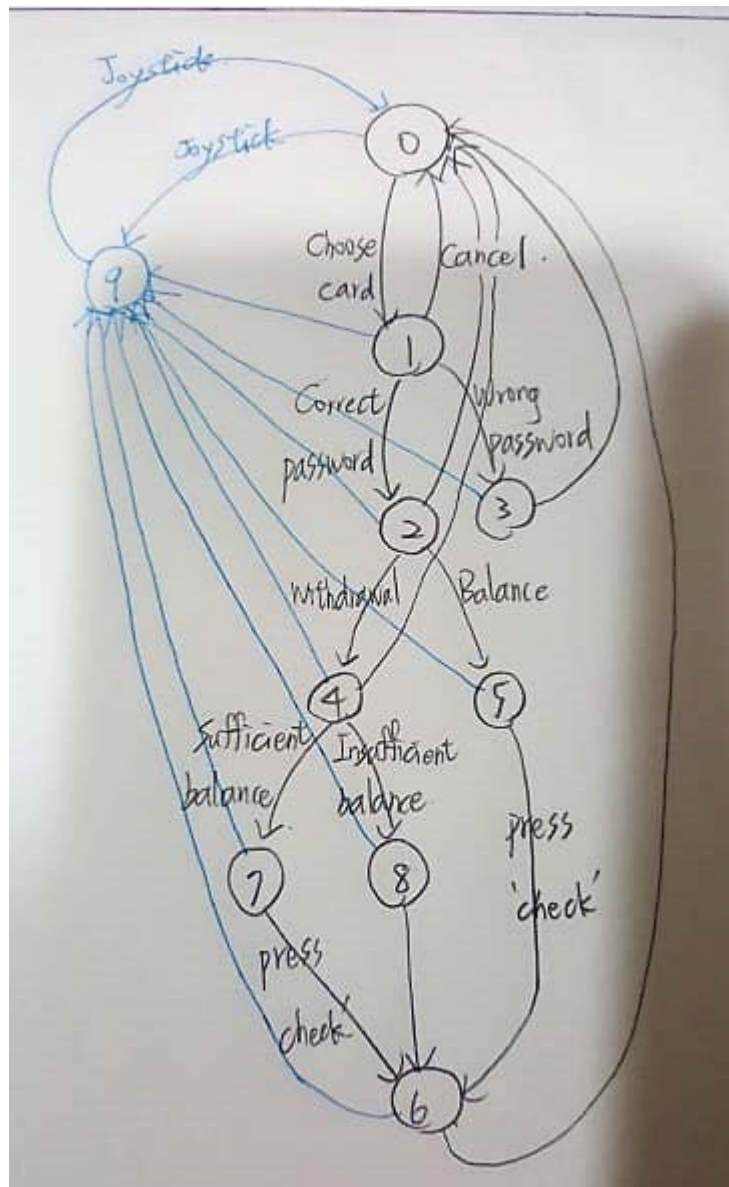 Joystick
0
Joystick
Choose
card
Cancel.
9
1
Correct
password
Wrong
password
2
3
Withdrawal
Balance
4
5
Sufficient
balance
Insufficient
balance
press
'check'
7
8
press
check'
6